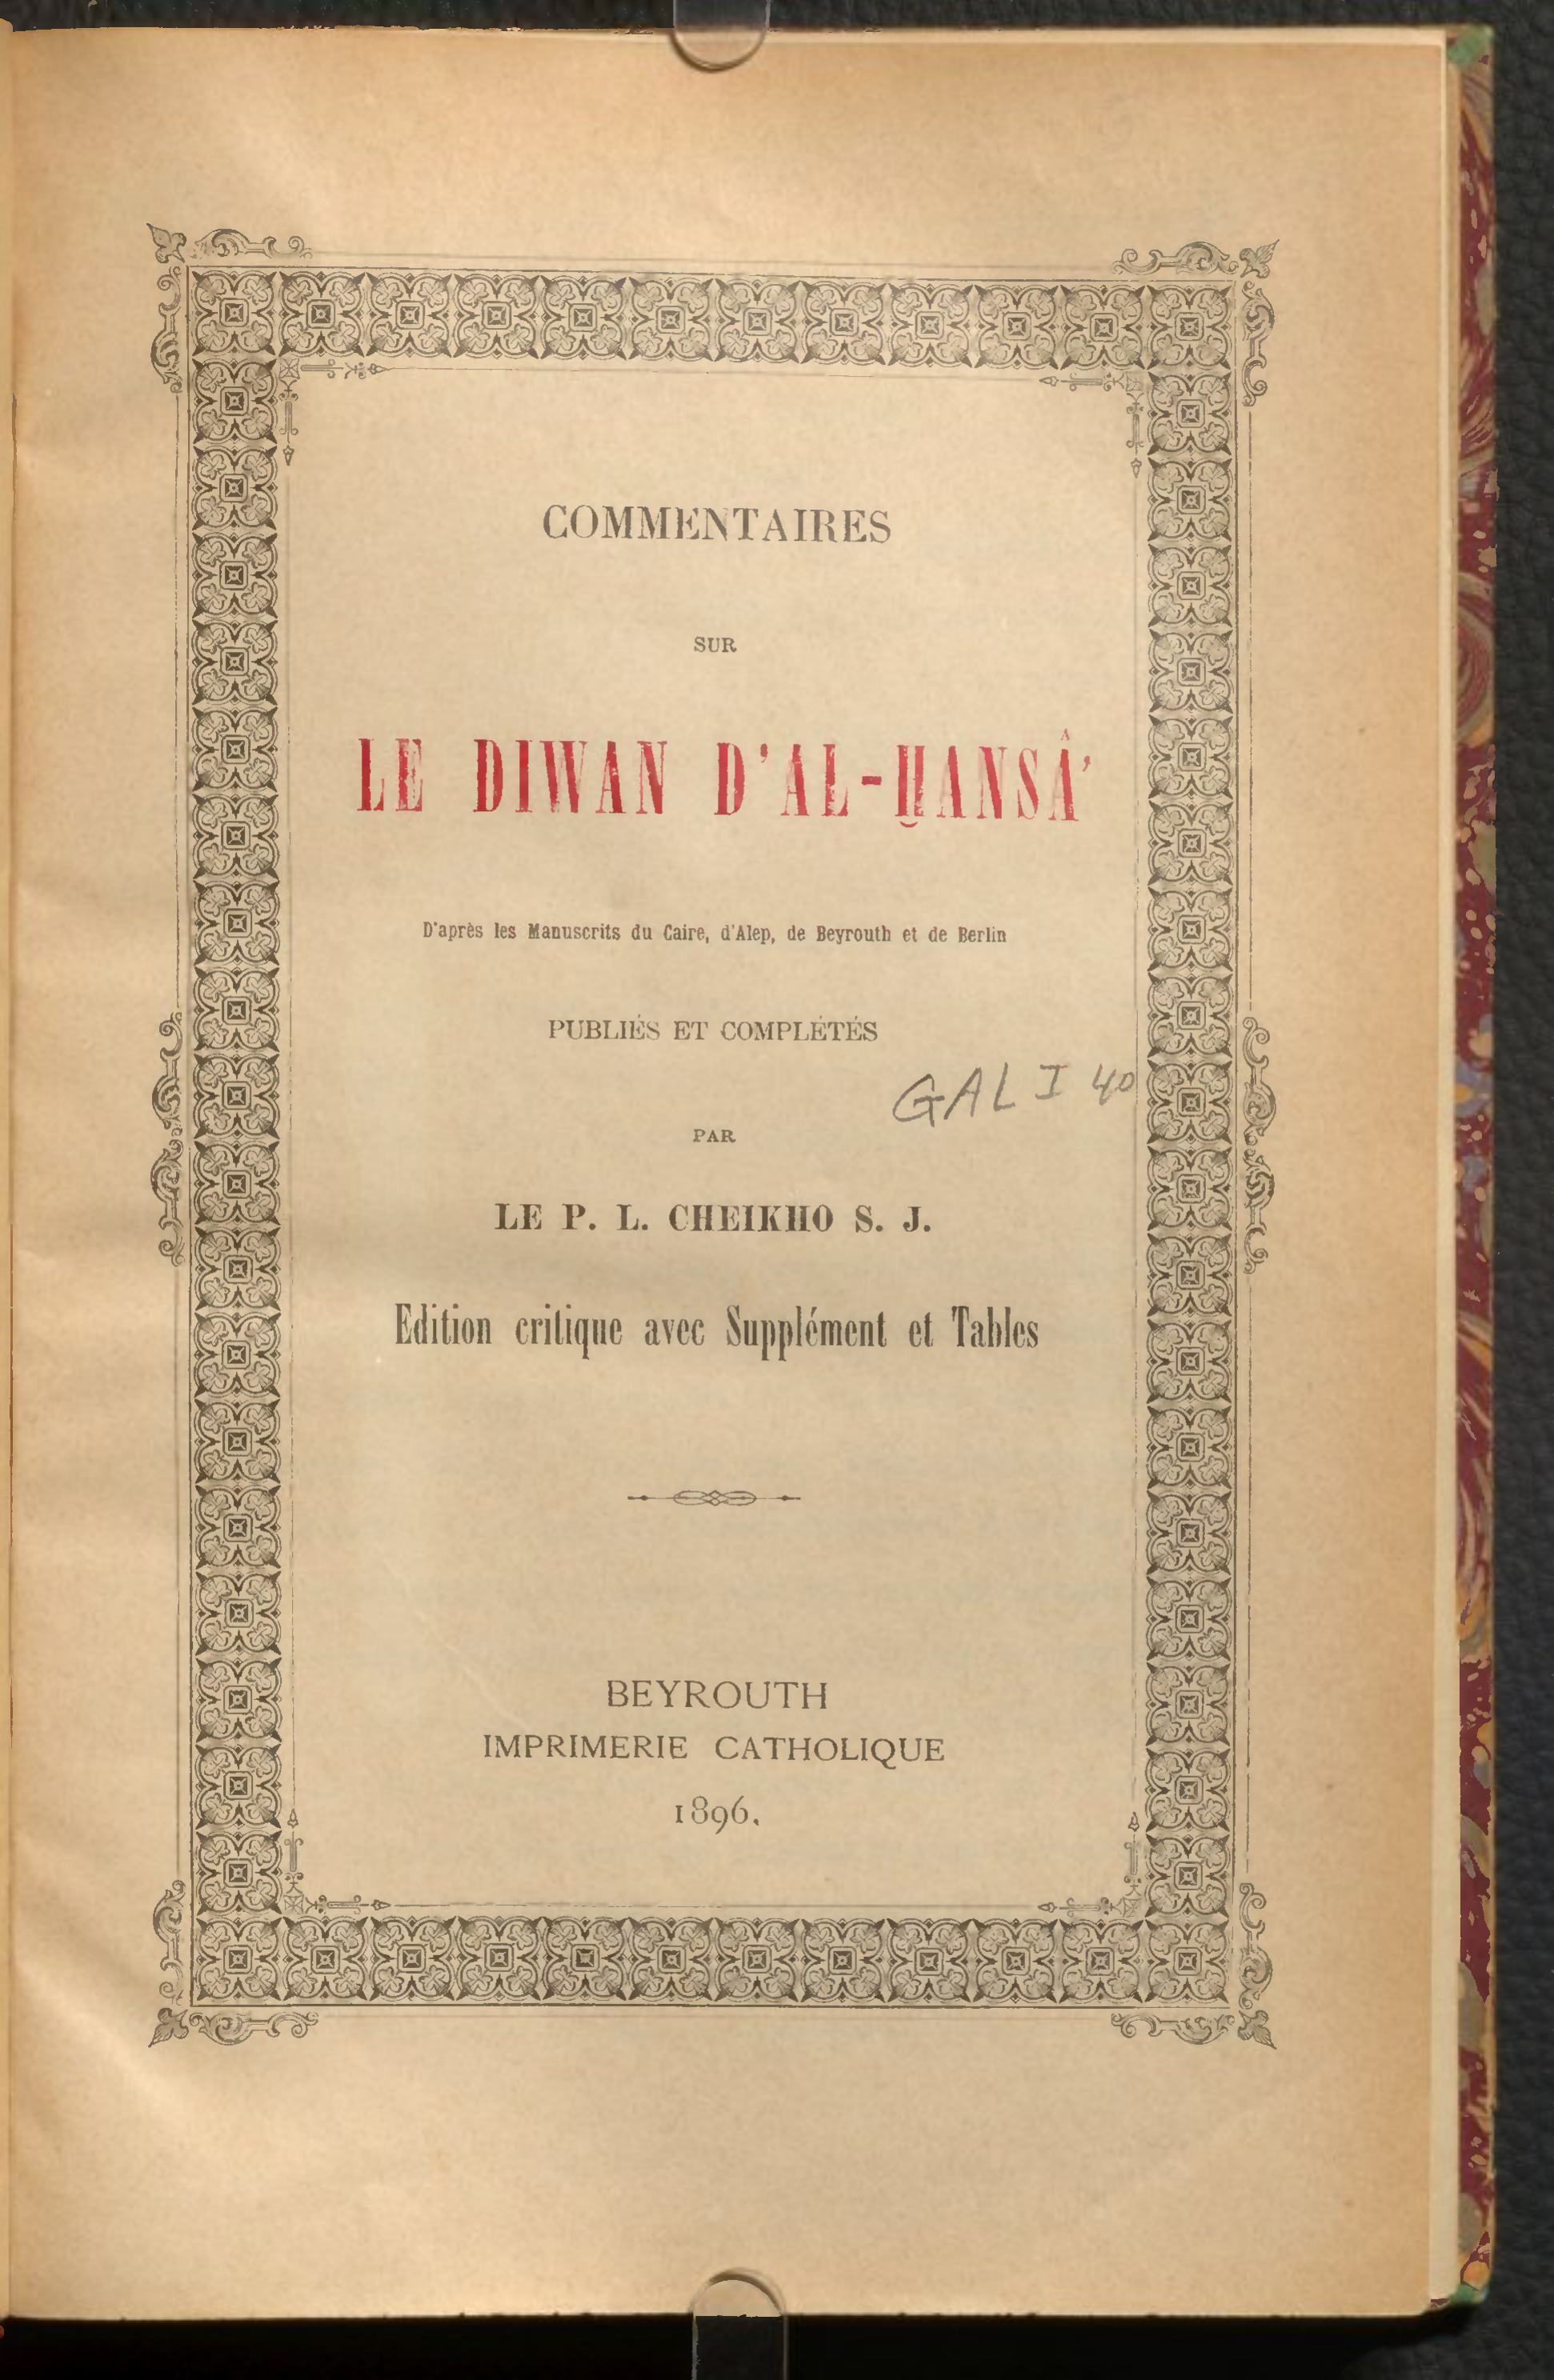 COMMENTAIRES
SUR
LE DIWAN D'AL-ḪANSÂ'
D'après les Manuscrits du Caire, d'Alep, de Beyrouth et de Berlin
PUBLIÉS ET COMPLÉTÉS
GAL I 40
PAR
LE P. L. CHEIKHO S. J.
Edition critique avec Supplément et Tables
BEYROUTH
IMPRIMERIE CATHOLIQUE
1896.